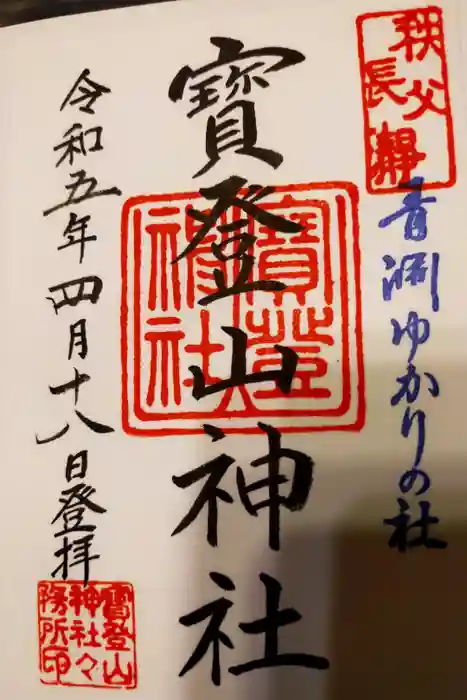 秩父
長瀞
青淵ゆかりの社
寳登山神社
寳登
神社
令和五年四月十八日登拝
寳登山
神社々
務所印